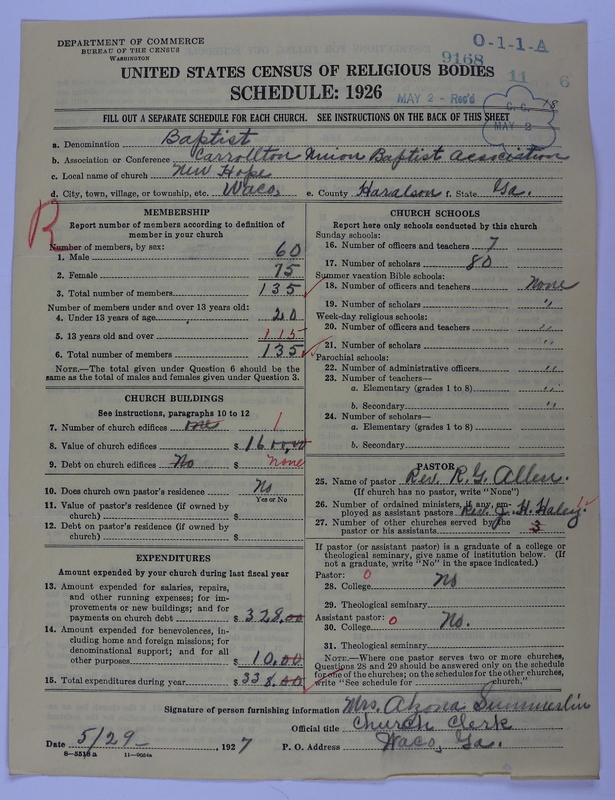 DEPARTMENT OF COMMERCE
BUREAU OF THE CENSUS
WASHINGTON
O-1-1-A
9168
11 6
UNITED STATES CENSUS OF RELIGIOUS BODIES
SCHEDULE: 1926
MAY 2 - Rec'd
C. C. 18
MAY 2
FILL OUT A SEPARATE SCHEDULE FOR EACH CHURCH. SEE INSTRUCTIONS ON THE BACK OF THIS SHEET
a. Denomination Baptist
b. Association or Conference Carrollton Union Baptist Association
c. Local name of church New Hope
d. City, town, village, or township, etc. Waco, e. County Haralson f. State Ga.
R
MEMBERSHIP
Report number of members according to definition of member in your church
Number of members, by sex:
1. Male 60
2. Female 75
3. Total number of members 135
Number of members under and over 13 years old:
4. Under 13 years of age 20
5. 13 years old and over 115
6. Total number of members 135
NOTE.—The total given under Question 6 should be same as the total of males and females given under Question 3.
CHURCH BUILDINGS
See instructions, paragraphs 10 to 12
7. Number of church edifices one 1
8. Value of church edifices $ 1600.00
9. Debt on church edifices No $ none
10. Does church own pastor's residence No
Yes or No
11. Value of pastor's residence (if owned by church) $
12. Debt on pastor's residence (if owned by church) $
EXPENDITURES
Amount expended by your church during last fiscal year
13. Amount expended for salaries, repairs, and other running expenses; for improvements or new buildings; and for payments on church debt $ 328.00
14. Amount expended for benevolences, including home and foreign missions; for denominational support; and for all other purposes $ 10.00
15. Total expenditures during year $ 338.00
CHURCH SCHOOLS
Report here only schools conducted by this church
Sunday schools:
16. Number of officers and teachers 7
17. Number of scholars 80
Summer vacation Bible schools:
18. Number of officers and teachers None
19. Number of scholars "
Week-day religious schools:
20. Number of officers and teachers "
21. Number of scholars "
Parochial schools:
22. Number of administrative officers "
23. Number of teachers—
a. Elementary (grades 1 to 8) "
b. Secondary "
24. Number of scholars—
a. Elementary (grades 1 to 8)
b. Secondary
PASTOR
25. Name of pastor Rev. R. G. Allen.
(If church has no pastor, write "None")
26. Number of ordained ministers, if any, employed as assistant pastors Rev. J. H. Haley.
27. Number of other churches served by the pastor or his assistants 3
If pastor (or assistant pastor) is a graduate of a college or theological seminary, give name of institution below. (If not a graduate, write "No" in the space indicated.)
Pastor: 0
28. College No
29. Theological seminary
Assistant pastor: 0
30. College No.
31. Theological seminary
NOTE.—Where one pastor serves two or more churches, Questions 28 and 29 should be answered only on the schedule for one of the churches; on the schedules for the other churches, write "See schedule for church."
Signature of person furnishing information Mrs. Summerlin
Official title Church Clerk
Date 5/29 - , 1927 P. O. Address Waco, Ga.
8-5518a 11-9054a